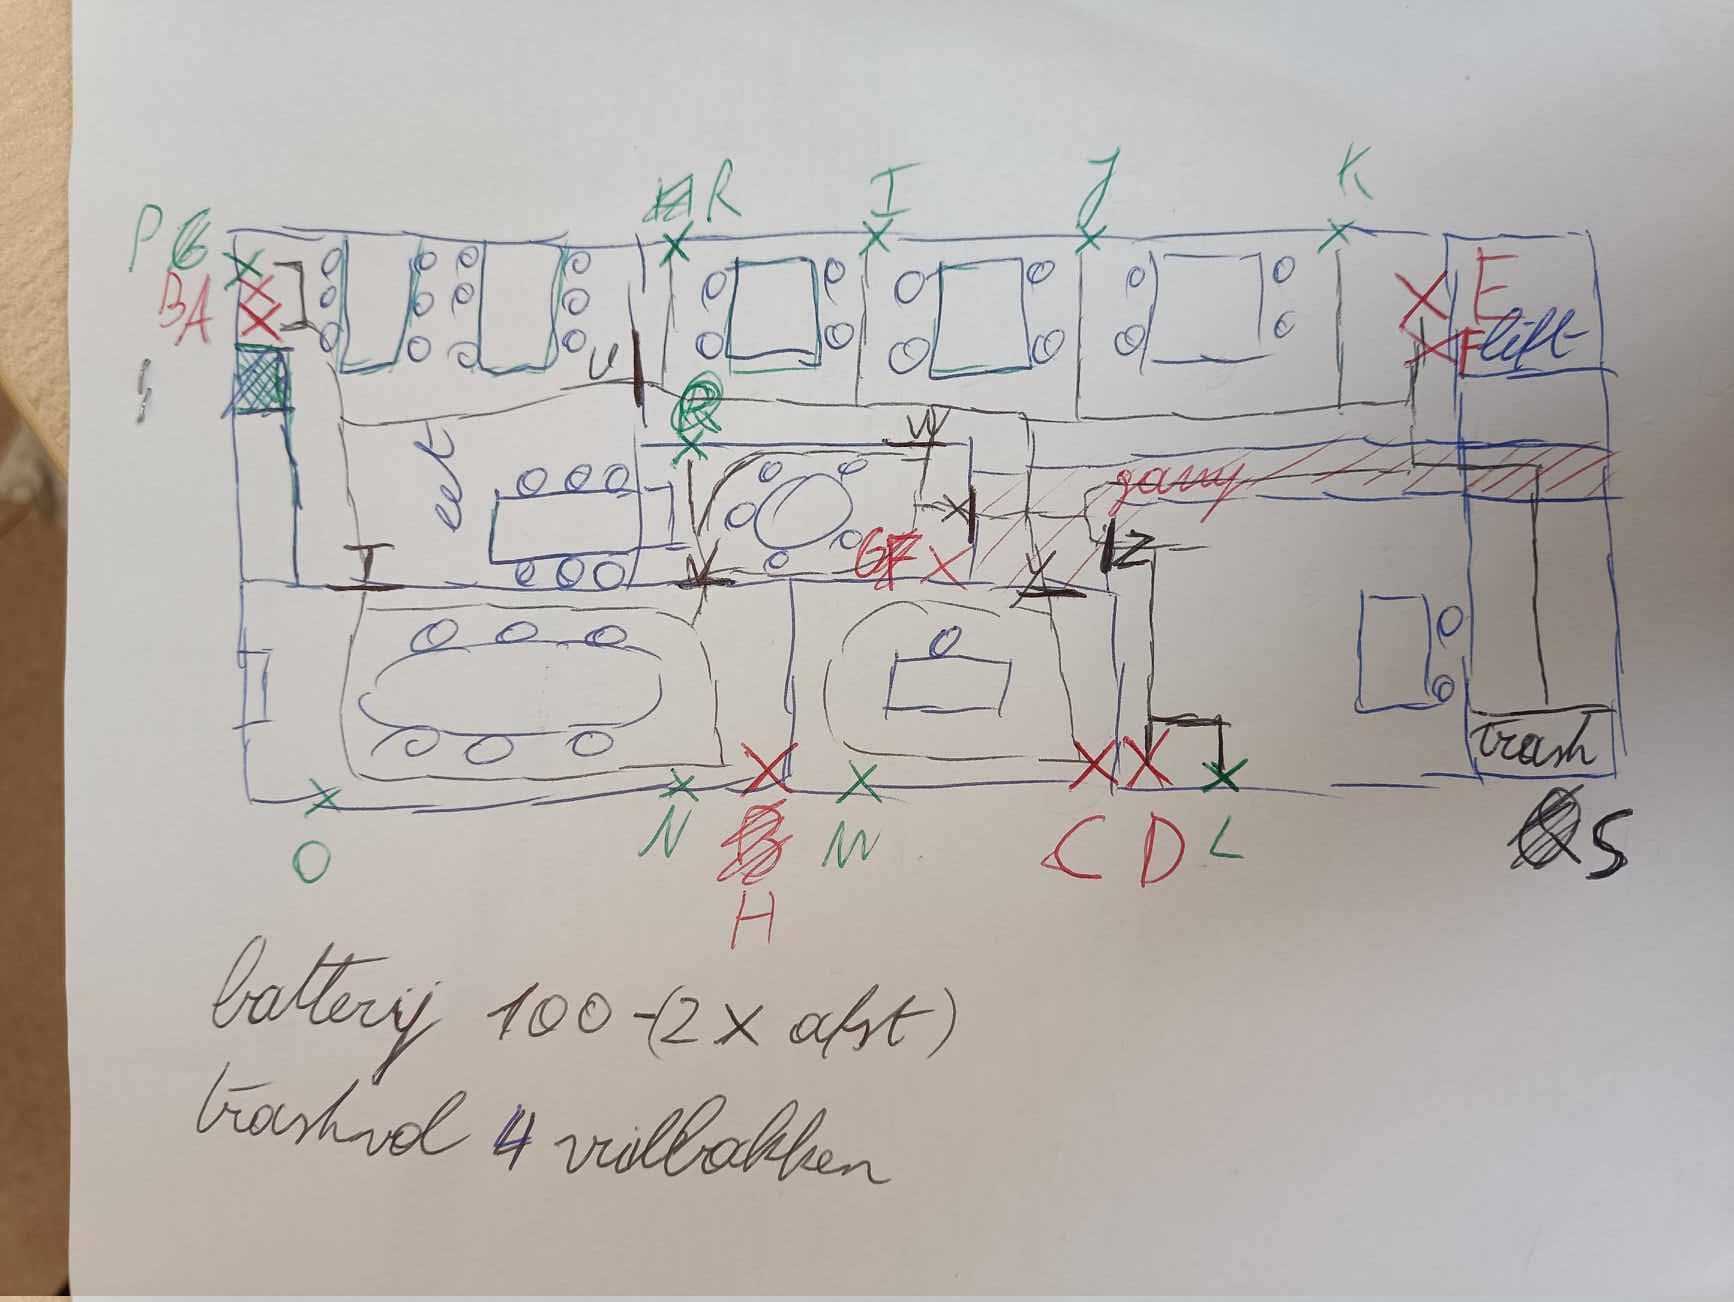 R I J K
P
BA E
lift
F
U
W
eet gang
X
GF
Z
T V Y
trash
O N M C D L S
H
batterij 100-(2x afst)
trashvol 4 vuilbakken